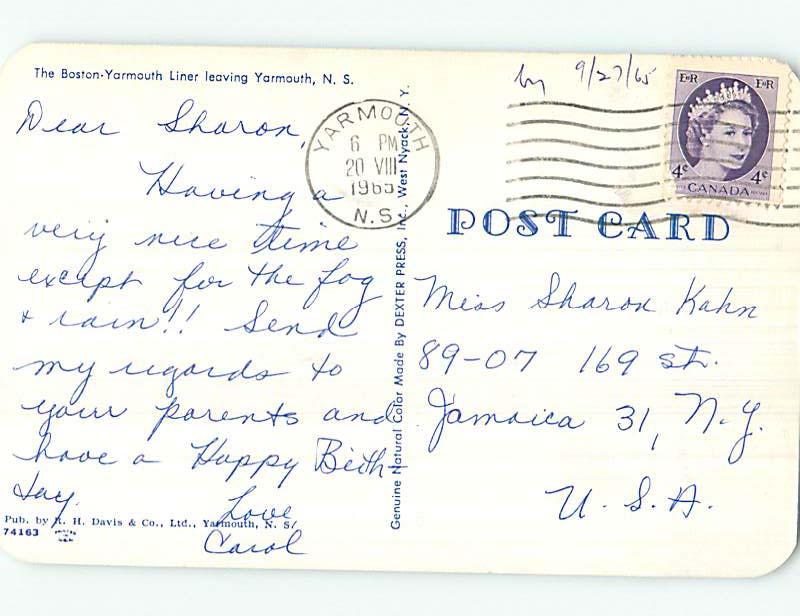 The Boston-Yarmouth Liner leaving Yarmouth, N. S.
Dear Sharon,
Having a
very nice time
except for the fog
& rain!! Send
my regards to
your parents and
have a Happy Birth-
day.
Love
Carol
Pub. by R. H. Davis & Co., Ltd., Yarmouth, N. S.
74163
Genuine Natural Color Made By DEXTER PRESS, Inc., West Nyack, N. Y.
YARMOUTH
6 PM
20 VIII
1965
N.S.
9/27/65
EIIR EIIR
4¢ 4¢
CANADA
POST CARD
Miss Sharon Kahn
89-07 169 st.
Jamaica 31, N.Y.
U. S. A.